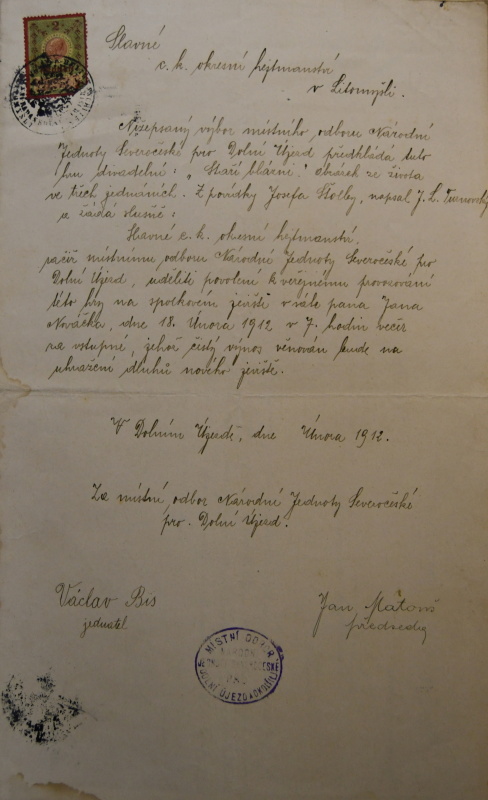 Slavné
c. k. okresní hejtmanství
v Litomyšli.
Nížepsaný výbor místního odboru Národní
Jednoty Severočeské pro Dolní Újezd předkládá tuto
hru divadelní: „Staří blázni." obrázek ze života
ve třech jednáních. Z povídky Josefa Štolby, napsal J. L. Turnovský
a žádá slušně:
Slavné c. k. okresní hejtmanství
račiž místnímu odboru Národní Jednoty Severočeské pro
Dolní Újezd, uděliti povolení k veřejnému provozování
této hry na spolkovém jevišti v sále pana Jana
Nováčka, dne 18. Února 1912 v 7. hodin večer
na vstupné, jehož čistý výnos věnován bude na
uhražení dluhů nového jeviště.
V Dolním Újezdě, dne Února 1912.
Za místní odbor Národní Jednoty Severočeské
pro. Dolní Újezd.
Václav Bis
jednatel
Jan Mátouš
předseda
MÍSTNÍ ODBOR
NÁRODNÍ
2